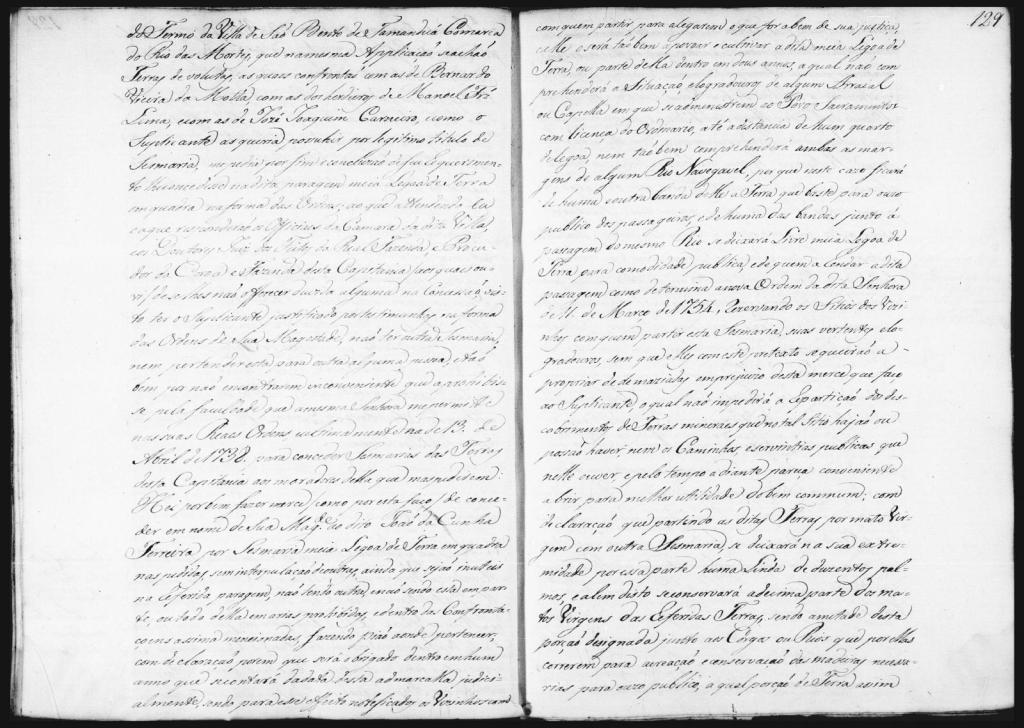 do Termo da Villa de São Bento de Tamanduá Comarca
do Rio das Mortes, que na mesma Applicação se achão
Terras de volutas, as quaes confrontão com as de Bernardo
Vieira da Motta, com as dos herdeiros de Manoel Frz
Lima, e com as de Jozé Joaquim Carneiro, e como o
Suplicante as queria possuhir por legitimo titulo de
Sesmaria, me pedia por fim e concluzão de seu requerimen-
to lhe concedese na dita paragem meia Legoa de Terra
em quadra na forma das Ordens; ao que attendendo Eu
e ao que responderão os Officiaes da Camara da dita Villa,
e os Doutores Juiz dos Feitos da Real Fazenda, e Procu-
dor da Coroa e Fazenda desta Capitania (aos quaes ou-
vi) de se lhes não offerecer duvida alguma na Concessão, vis-
to ter o Suplicante justificado por testimunhas na forma
das Ordens de Sua Magestade, não ter outra Sesmaria,
nem pertender esta para outra alguma pessoa, e tão
bem por não encontrarem inconveniente que a prohibis-
se pela faculdade que a mesma Senhora me permitte
nas suas Reaes Ordens e ultimamente na de 13. de
Abril de 1738, para conceder Sesmarias das Terras
desta Capitania aos moradores della que mas pedisem:
Hei por bem fazer merce (como por esta faço) de conce-
der em nome de Sua Mag.e ao dito João da Cunha
Ferreira por Sesmaria meia Legoa de Terra em quadra
nas pedidas, sem interpulação de outras, ainda que sejão inuteis
na Referida paragem, não tendo outra, e não sendo esta em par-
te, ou todo della em arias prohibidas, e dentro das Confronta-
çoens assima mencionadas, fazendo pião aonde pertencer;
com declaração porem que será obrigado dentro em hum
anno que se contará da data desta a demarcalla judici-
almente, sendo para esse effeito notificados os Vizinhos com
129
com quem partir, para alegarem o que for a bem de sua justiça,
e elle o será tão bem a povoar e cultivar a dita meia Legoa de
Terra, ou parte della dentro em dous annos, a qual não com
prehenderá a Situação, e logradouros de algum Arraial
ou Capella em que se administrem ao Povo Sacramentos
com licença do Ordinario, até a distancia de hum quarto
de legoa, nem tão bem comprehenderá ambas as mar-
gens de algum Rio Navegavel, por que neste cazo ficará
de huma e outra banda delle a Terra que baste para o uzo
publico dos passageiros, e de huma das bandas junto á
passagem do mesmo Rio se deixará Livre meia Legoa de
Terra para comodidade publica, e de quem a rendar a dita
passagem como determina a nova Ordem da dita Senhora
de 11. de Março de 1754, Rezervando os Sitios dos Vizi-
nhos com quem partir esta Sesmaria, suas vertentes e lo-
gradouros, sem que elles com este pretexto se queirão a-
propriar de demaziadas em prejuizo desta merce que faço
ao Suplicante, o qual não impedirá a Repartição dos des-
cobrimentos de Terras mineraes que no tal Sitio hajão ou
possão haver nem os Caminhos, e serventias publicas que
nelle ouver, e pelo tempo a diante pareça conveniente
abrir para melhor utilidade do bem commum; com
declaração que partindo as ditas Terras por mato Vir-
gem com outra Sesmaria, se deixará na sua extre-
midade por essa parte huma Linda de duzentos pal-
mos, e alem disto se conservará a decima parte dos ma-
tos Virgens das Referidas Terras, sendo ametade desta
porção designada junto aos Corgos ou Rios que por ellas
correrem para a creação e conservação das madeiras necessa-
rias para o uzo publico, a qual porção de Terra assim